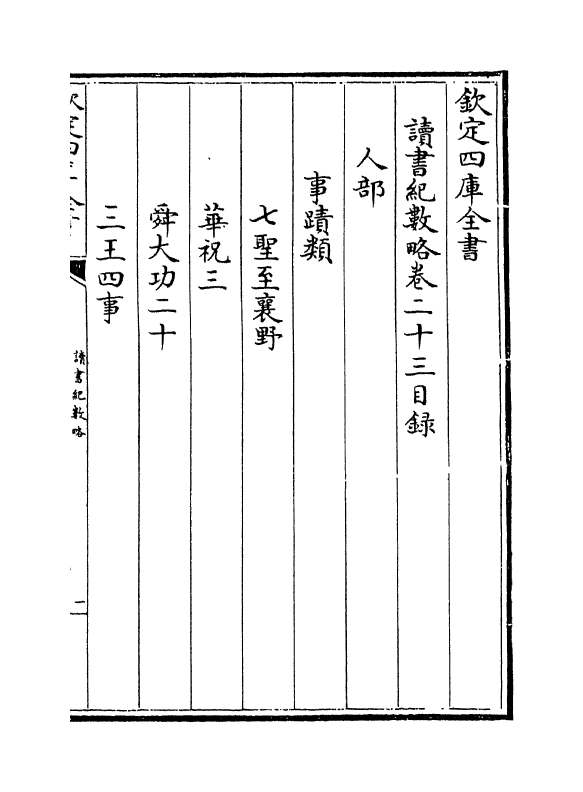 欽定四庫全書
讀書紀數略卷二十三目録
人部
事蹟類
七聖至襄野
華祝三
舜大功二十
三王四事
欽定四庫全書
讀書紀數略
二